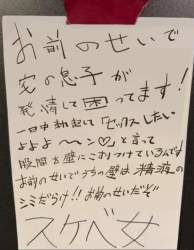 お前のせいで
家の息子が
発情して困ってます!
一日中勃起して「セックスしたい
よよよ〜〜ン♡」と言って
股間を壁にこすりつけているんです
お前のせいでうちの壁は精液の
シミだらけ!!お前のせいだぞ
スケベ女